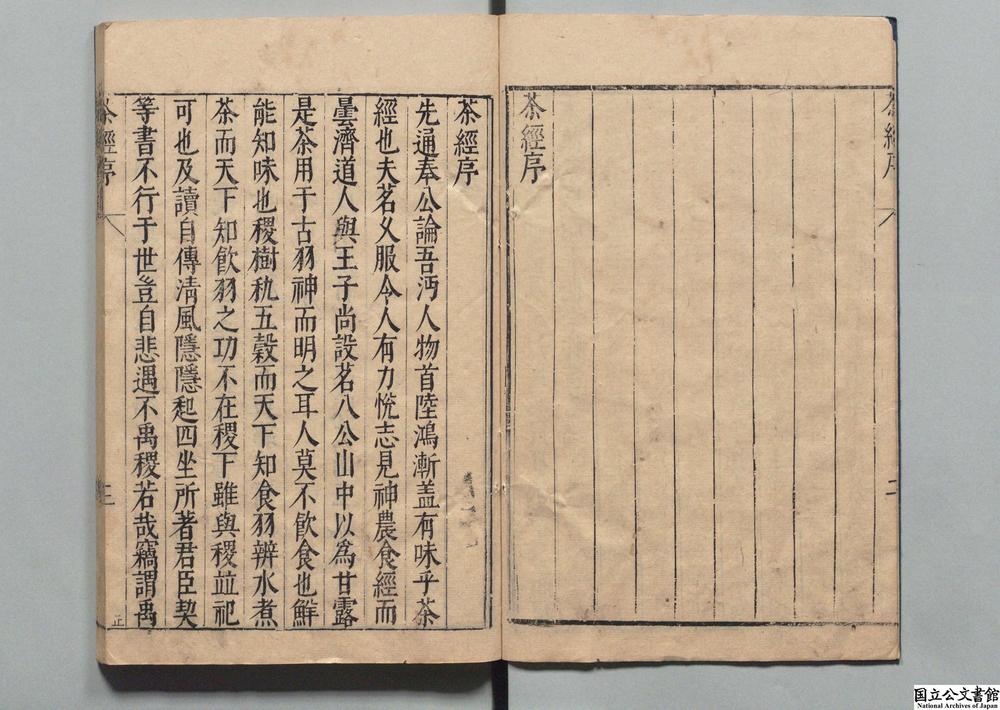 茶經序
茶經序
二
茶經序
先通奉公論吾沔人物首陸鴻漸盖有味乎茶
經也夫茗久服令人有力悅志見神農食經而
曇濟道人與王子尚設茗八公山中以為甘露
是茶用于古羽神而明之耳人莫不飲食也鮮
能知味也稷樹秇五穀而天下知食羽辨水煮
茶而天下知飲羽之功不在稷下雖與稷並祀
可也及讀自傳清風隱隱起四坐所著君臣契
等書不行于世豈自悲遇不禹稷若哉竊謂禹
茶經序
三
正
国立公文書館
National Archives of Japan